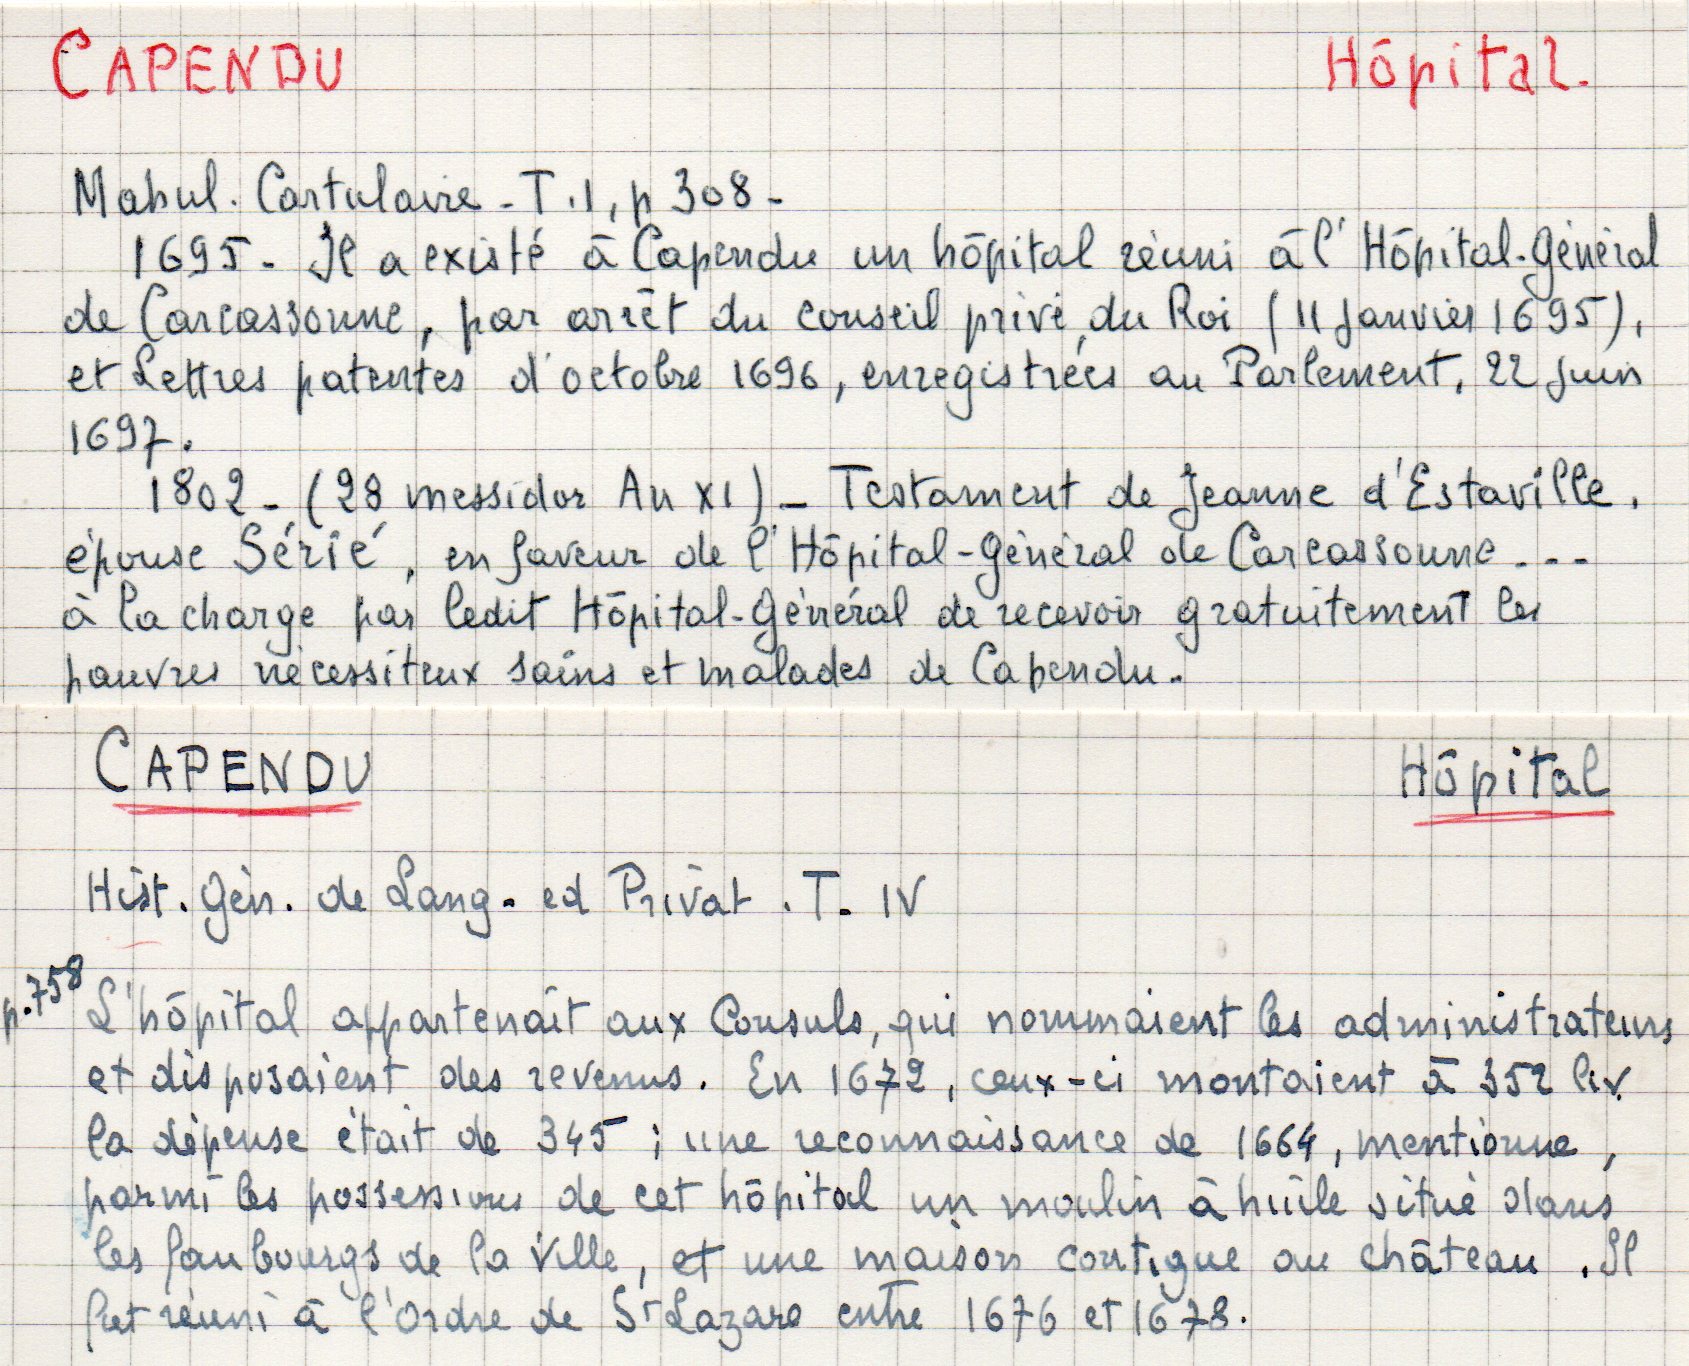 CAPENDU Hôpital.
Mahul. Cartulaire - T.1, p 308 -
1695 - Il a existé à Capendu un hôpital réuni à l'Hôpital-Général
de Carcassonne, par arrêt du conseil privé du Roi (11 Janvier 1695),
et Lettres patentes d'octobre 1696, enregistrées au Parlement, 22 Juin
1697.
1802 - (28 messidor An XI) - Testament de Jeanne d'Estaville,
épouse Sérié, en faveur de l'Hôpital-Général de Carcassonne ---
à la charge par ledit Hôpital-Général de recevoir gratuitement les
pauvres nécessiteux sains et malades de Capendu.
CAPENDU Hôpital
Hist. Gén. de Lang. ed Privat. T. IV
p.758 L'hôpital appartenait aux Consuls, qui nommaient les administrateurs
et disposaient des revenus. En 1672, ceux-ci montaient à 352 liv.
la dépense était de 345 ; une reconnaissance de 1664, mentionne,
parmi les possessions de cet hôpital un moulin à huile situé dans
les faubourgs de la Ville, et une maison contigue au château. Il
fut réuni à l'Ordre de St Lazare entre 1676 et 1678.